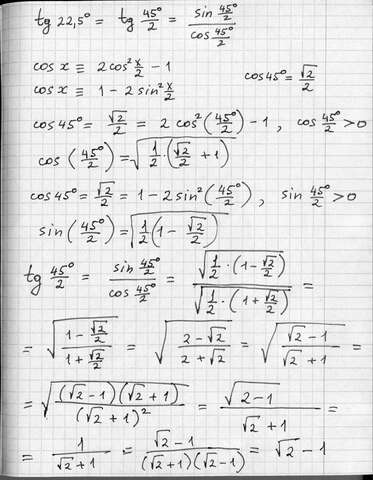 tg 22,5° = tg 45°/2 = (sin 45°/2)/(cos 45°/2)
cos x ≡ 2cos² x/2 − 1
cos x ≡ 1 − 2 sin² x/2
cos 45° = √2/2
cos 45° = √2/2 = 2 cos²(45°/2) − 1 , cos 45°/2 > 0
cos (45°/2) = √(1/2 · (√2/2 + 1))
cos 45° = √2/2 = 1 − 2 sin²(45°/2) , sin 45°/2 > 0
sin (45°/2) = √(1/2 (1 − √2/2))
tg 45°/2 = (sin 45°/2)/(cos 45°/2) = √(1/2 · (1 − √2/2))/√(1/2 · (1 + √2/2)) =
= √((1 − √2/2)/(1 + √2/2)) = √((2 − √2)/(2 + √2)) = √((√2 − 1)/(√2 + 1)) =
= √((√2 − 1)(√2 + 1)/(√2 + 1)²) = √(2 − 1)/(√2 + 1) =
= 1/(√2 + 1) = (√2 − 1)/((√2 + 1)(√2 − 1)) = √2 − 1